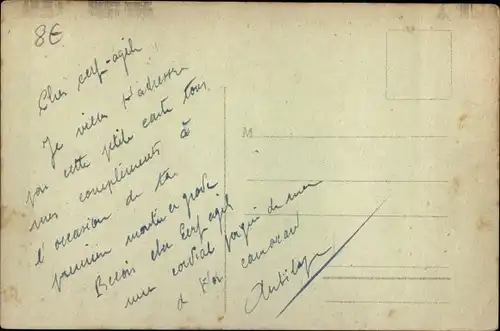 8€
Cher cerf-agile
Je viens t'adresser
par cette petite carte tous
mes compliments à
l'occasion de ta
première montée en grade
Reçois cher Cerf agile
une cordial poignée de main
de ton camarade
Antilope
M